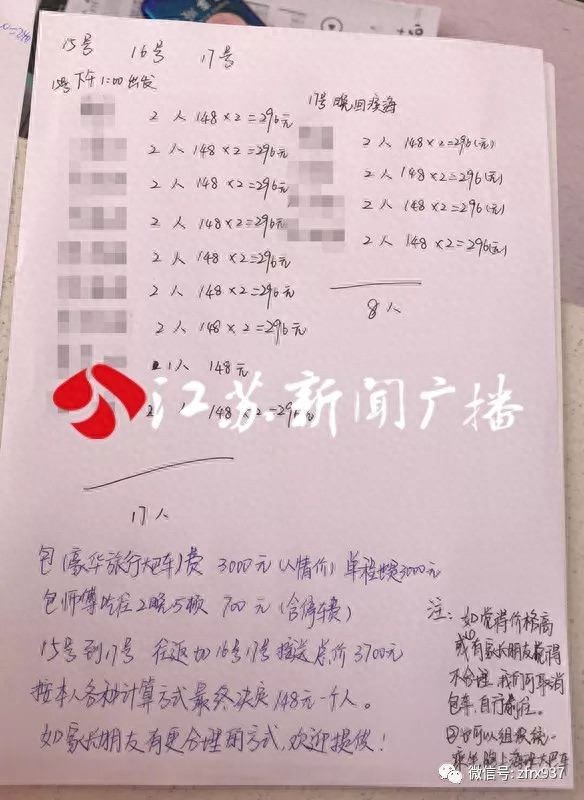 15号 16号 17号
15号下午1:00出发
17号晚回
2人 148×2=296元
2人 148×2=296元
2人 148×2=296元
2人 148×2=296元
2人 148×2=296元
2人 148×2=296元
2人 148×2=296元
1人 148元
2人 148×2=296元
17人
2人 148×2=296(元)
2人 148×2=296(元)
2人 148×2=296(元)
2人 148×2=296(元)
8人
江苏新闻广播
包(豪华旅行大巴车)费 3000元(人情价)单程也要3000元
包师傅吃住2晚5顿 700元(含停车费)
15号到17号 往返加16号17号接送 总价3700元
按本人各种计算方式最终决定148元一个人。
如家长朋友有更合理的方式,欢迎提供!
注:如觉得价格高
或有家长朋友觉得
不合理,我们可取消
包车,自行前往。
也可以组织统一
大巴车
微信号:zfrx937